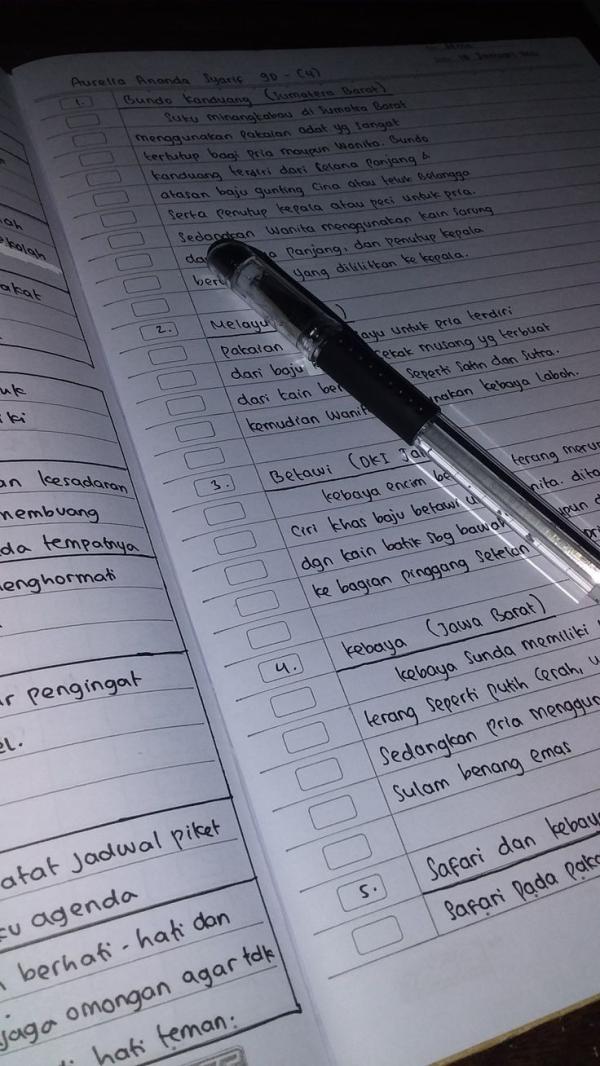 ah
ekolah
akat
uk
iki
an kesadaran
membuang
da tempatnya
enghormati
ar pengingat
el.
atat jadwal piket
ku agenda
n berhati - hati dan
jaga omongan agar tdk
hati teman:
Aurellia Ananda Syarif 9D - (4)
1. Bundo Kanduang (Sumatera Barat)
Suku minangkabau di Sumatra Barat
menggunakan pakaian adat yg sangat
tertutup bagi pria maupun wanita. Bundo
kanduang terdiri dari Celana Panjang &
atasan baju gunting Cina atau teluk Belangga
Serta penutup kepala atau peci untuk pria.
Sedangkan wanita menggunakan kain Sarung
da a Panjang, dan penutup kepala
ber yang dililitkan ke kepala.
2. Melayu )
Pakaian ayu untuk pria terdiri
dari baju cekak musang yg terbuat
dari kain be Seperti Satin dan Sutra.
kemudian Wanit nakan kebaya Laboh.
3. Betawi (DKI Ja
kebaya encim be terang meru
Ciri khas baju betawi u nita. dita
dgn kain batik Sbg bawah upun d
ke bagian pinggang Setelan pri
4. kebaya (Jawa Barat)
kebaya Sunda memiliki
terang seperti putih Cerah, u
Sedangkan Pria menggun
Sulam benang emas
5. Safari dan kebay
Safari pada paka